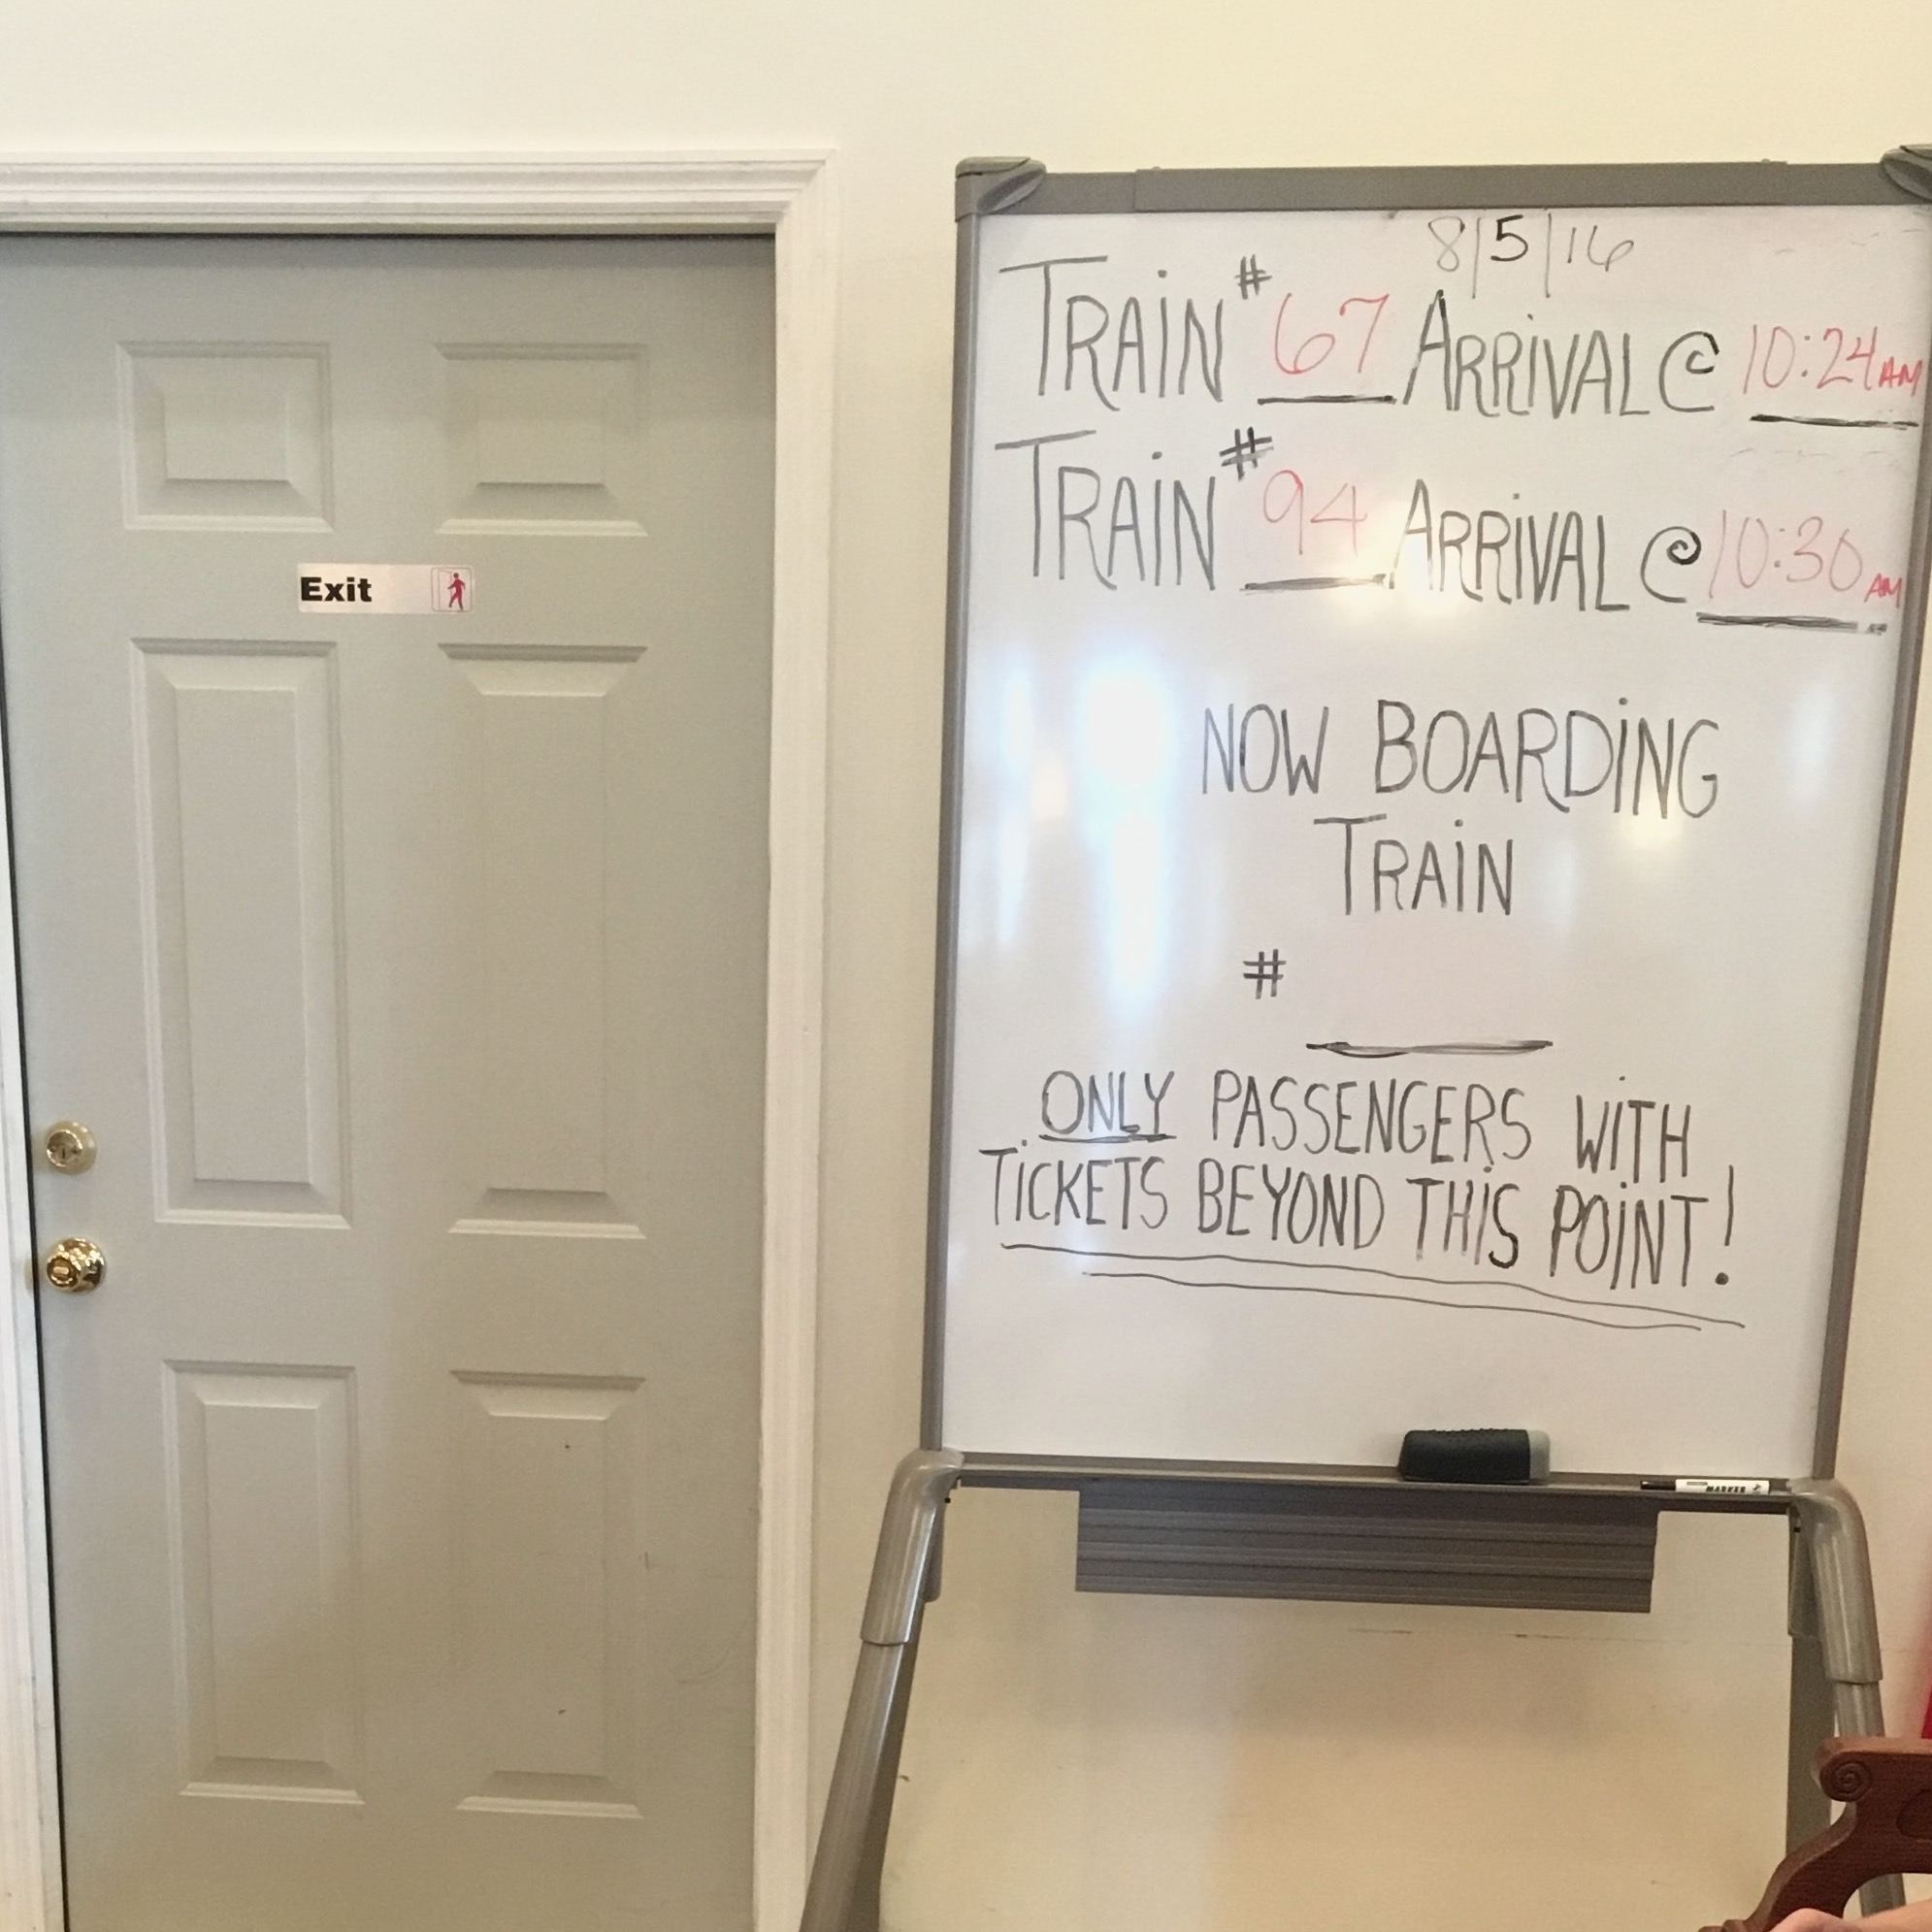 Exit
8/5/16
TRAIN # 67 ARRIVAL @ 10:24 AM
TRAIN # 94 ARRIVAL @ 10:30 AM
NOW BOARDING
TRAIN
#
ONLY PASSENGERS WITH
TICKETS BEYOND THIS POINT!
MARKER